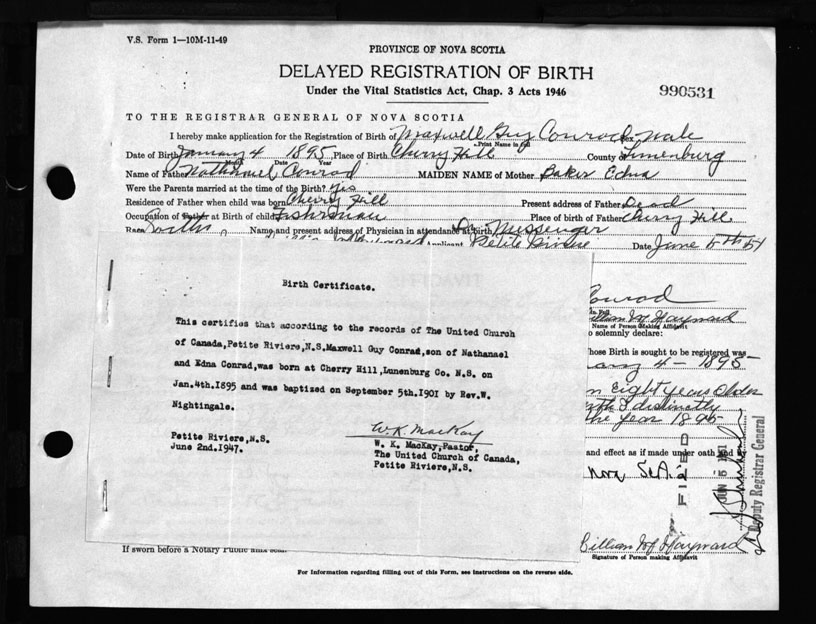 V.S. Form 1—10M-11-49
PROVINCE OF NOVA SCOTIA
DELAYED REGISTRATION OF BIRTH
Under the Vital Statistics Act, Chap. 3 Acts 1946
990531
TO THE REGISTRAR GENERAL OF NOVA SCOTIA
I hereby make application for the Registration of Birth of Maxwell Guy Conrad Sex Male
Print Name in full
Date of Birth January 4 1895 Place of Birth Cherry Hill County of Lunenburg
Month Date Year
Name of Father Nathaniel Conrad MAIDEN NAME of Mother Baker Edna
Were the Parents married at the time of the Birth? Yes
Residence of Father when child was born Cherry Hill Present address of Father Dead
Occupation of Father at Birth of child Fishrman Place of birth of Father Cherry Hill
Race Name and present address of Physician in attendance at birth Dr Messenger
Applicant Petite Riviere Date June 5th 51
Birth Certificate.
This certifies that according to the records of The United Church
of Canada,Petite Riviere,N.S.Maxwell Guy Conrad,son of Nathanael
and Edna Conrad,was born at Cherry Hill,Lunenburg Co. N.S. on
Jan.4th.1895 and was baptized on September 5th.1901 by Rev.W.
Nightingale.
W.K. MacKay
Petite Riviere,N.S.
June 2nd.1947.
W. K. MacKay,Pastor,
The United Church of Canada,
Petite Riviere,N.S.
Conrad
illian M Hayward
Name of Person Making Affidavit
o solemnly declare:
hose Birth is sought to be registered was
ary 4 - 1895
n Eight years Older
rth & distinctly
the year 1895
and effect as if made under oath and
FILED
JUN 5 1951
Deputy Registrar General
illian M Hayward
Signature of Person making Affidavit
If sworn before a Notary Public
For Information regarding filling out of this Form, see instructions on the reverse side.